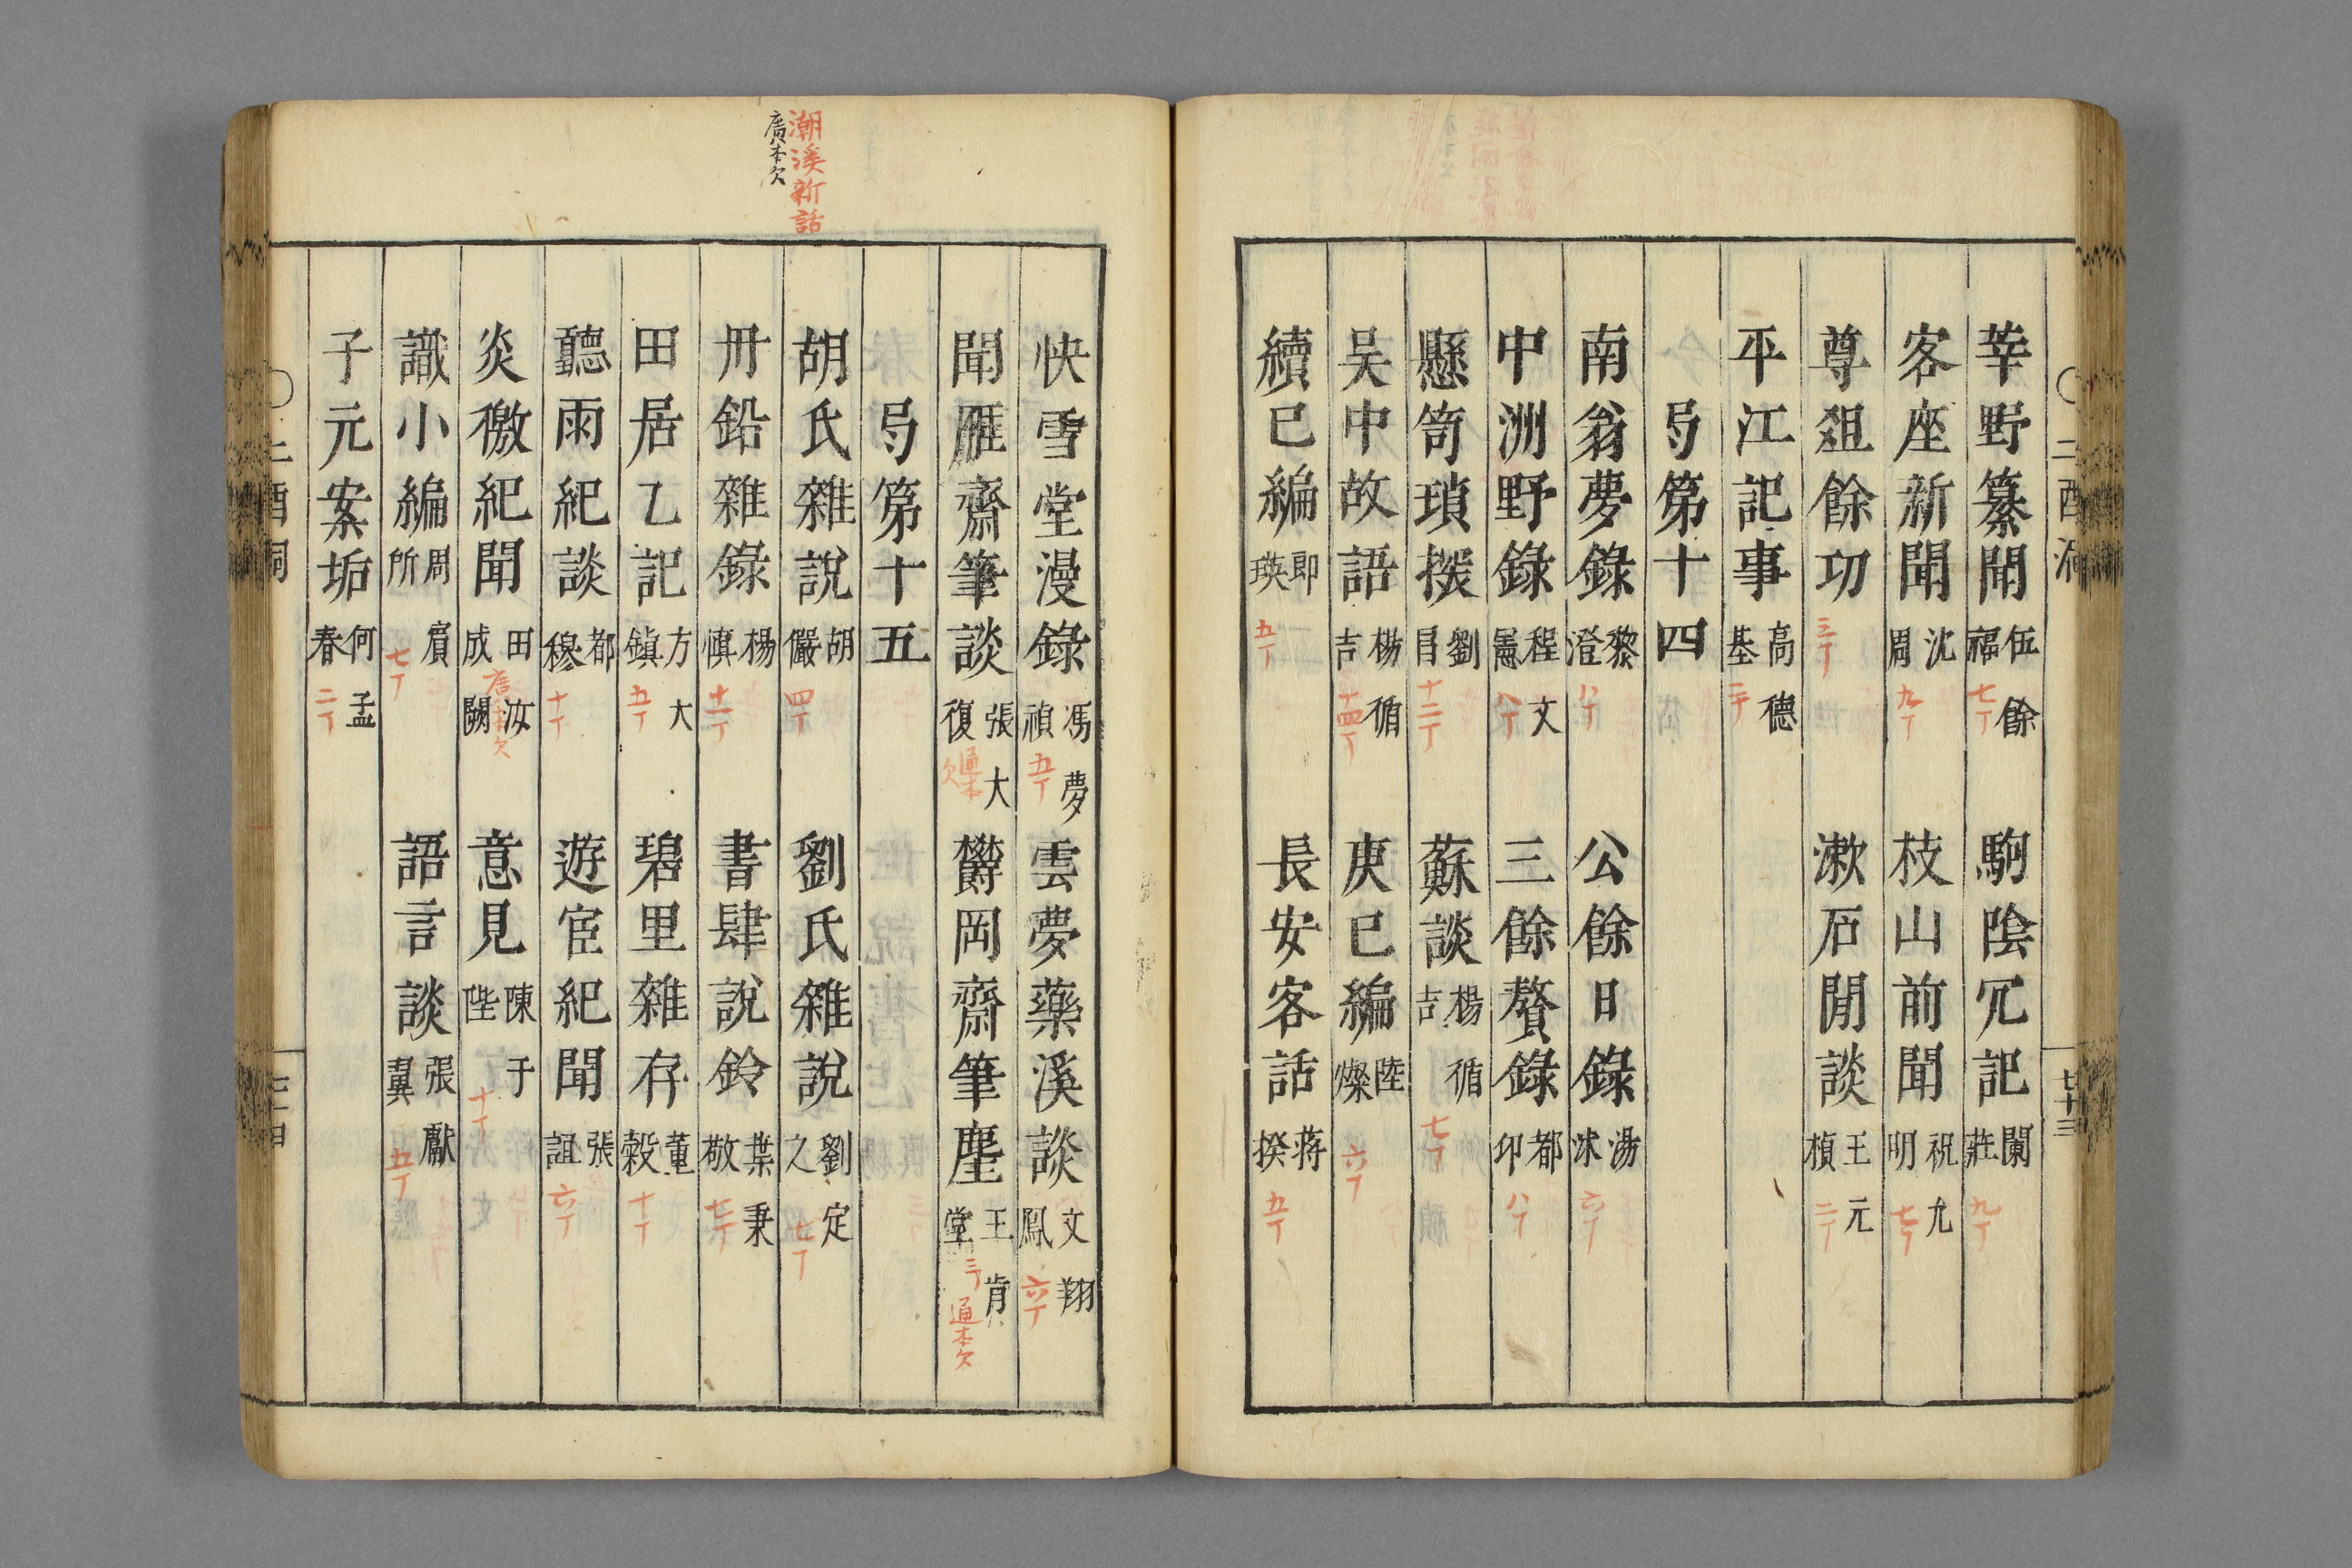 莘野纂聞 伍餘福 七丁 駒陰冗記 闌莊 九丁
客座新聞 沈周 九丁 枝山前聞 祝允明 七丁
尊俎餘功 三丁 漱石閒談 王元楨 二丁
平江記事 高德基 二丁
弓第十四
南翁夢錄 黎澄 八丁 公餘日錄 湯沐 六丁
中洲野錄 程文憲 八丁 三餘贅錄 都卬 八丁
懸笥瑣探 劉昌 十二丁 蘇談 楊循吉 七丁
吴中故語 楊循吉 十四丁 庚巳編 陸燦 六丁
續巳編 郎瑛 五丁 長安客話 蒋揆 五丁
潮溪新話
廣本欠
快雪堂漫錄 馮夢禎 五丁 雲夢藥溪談 文翔鳳 六丁
聞雁齋筆談 張大復 通本欠 鬱岡齋筆麈 王肯堂 三丁 通本欠
弓第十五
胡氏雜說 胡儼 四丁 劉氏雜說 劉定之 七丁
丹鉛雜錄 楊慎 十二丁 書肆說鈴 葉秉敬 七丁
田居乙記 方大鎮 五丁 碧里雜存 董穀 十丁
聽雨紀談 都穆 十丁 遊宦紀聞 張誼 六丁
炎徼紀聞 田汝成 闕 唐本欠 意見 陳于陛 十丁
識小編 周賓所 七丁 語言談 張獻翼 五丁
子元案垢 何孟春 二丁